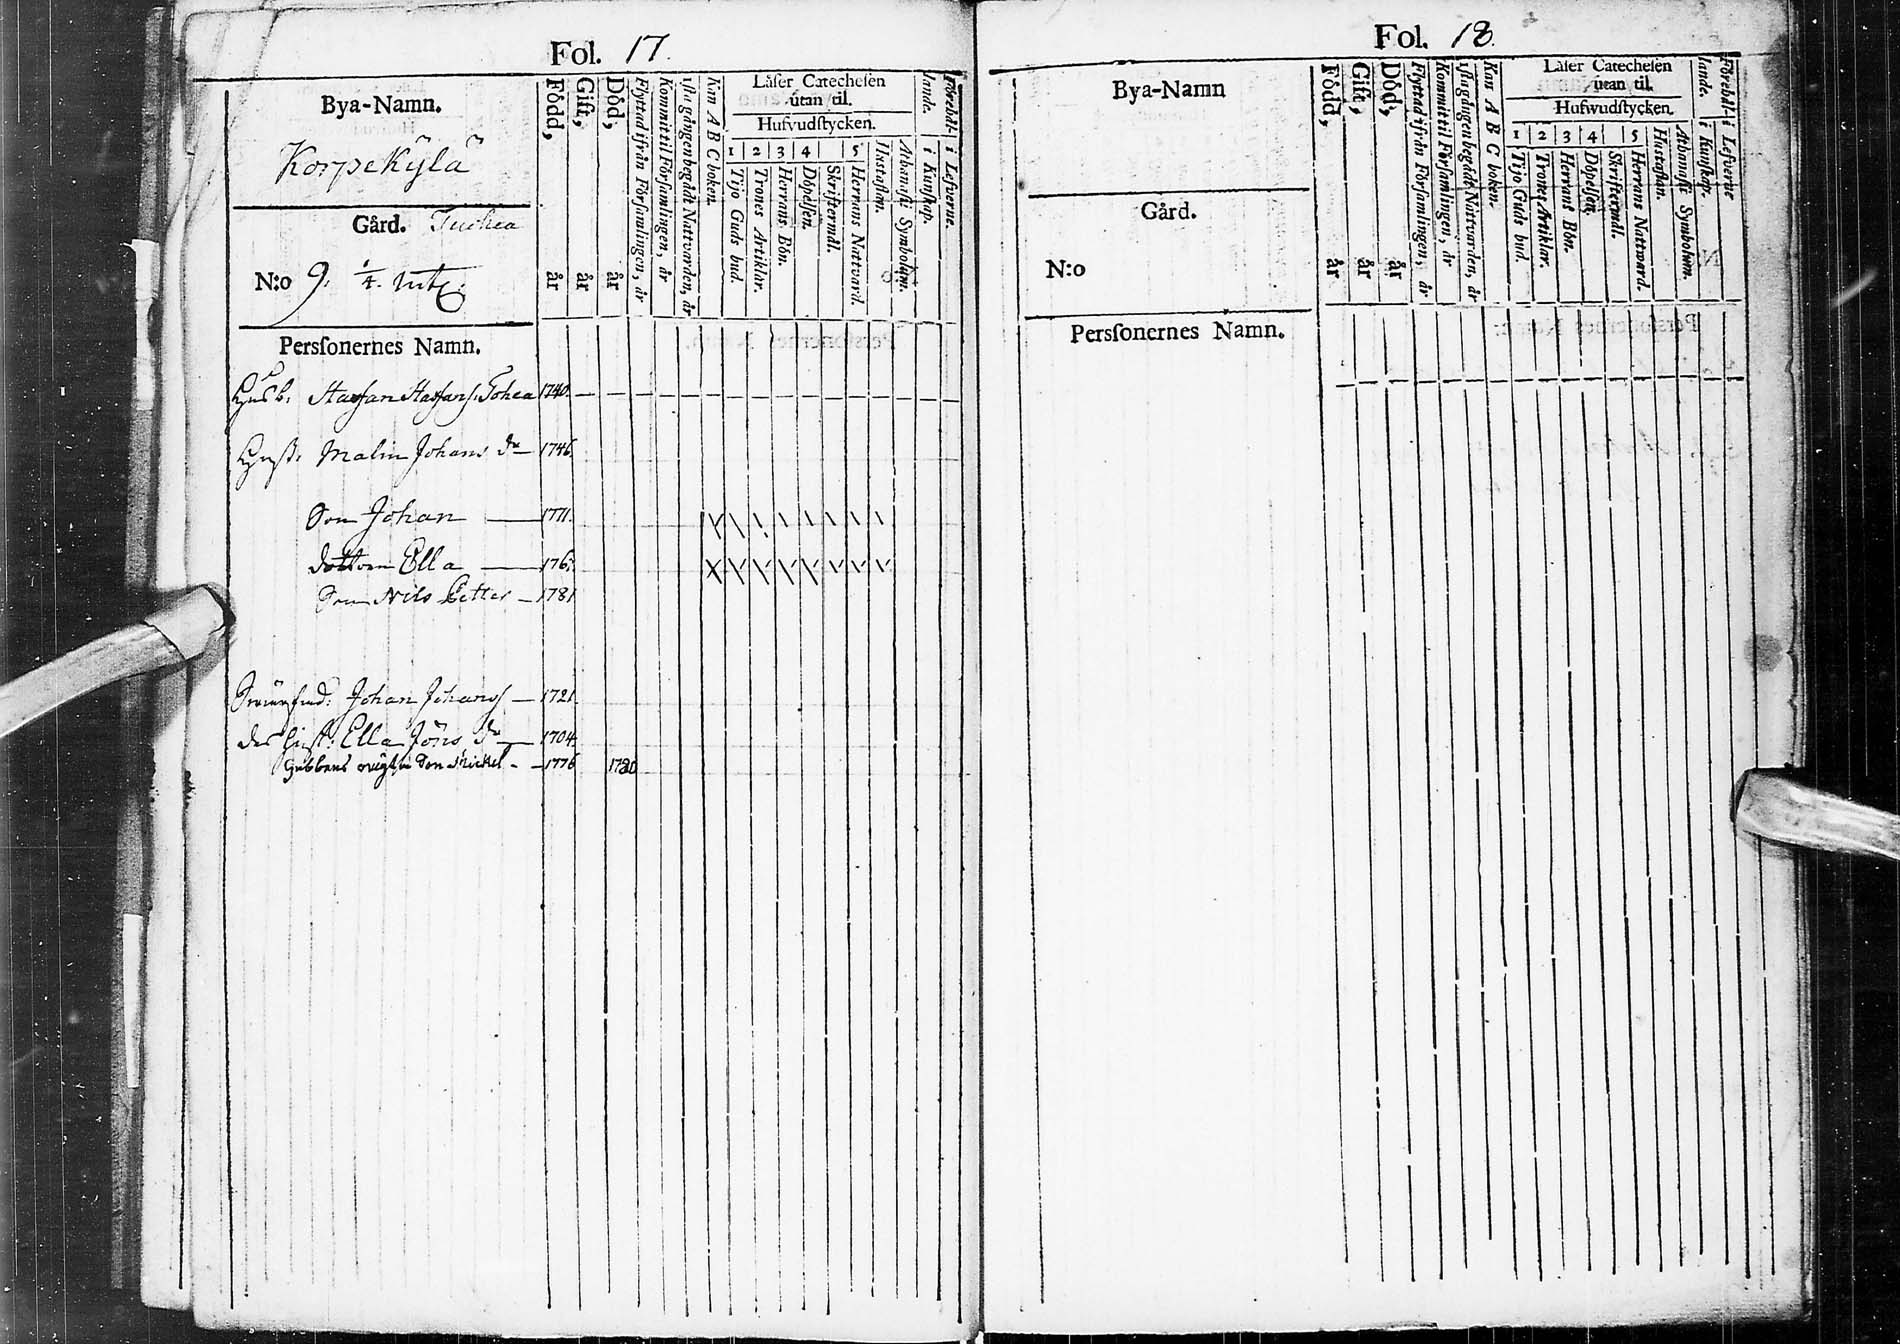 Fol. 17.
Bya-Namn.
Korpekÿlä
Gård. Tuohea
N:o 9. 1/4. mtl.
Född, år
Gift, år
Död, år
Flyttad ifrån Församlingen, år
Kommit til Församlingen, år
sista gången begådt Nattvarden, år
Kan A B C boken.
Läser Catechesen
utan til.
Hufvudstycken.
1 2 3 4 5
Tijo Guds bud.
Trones Artiklar.
Herrans Bön.
Döpelsen.
Skriftermål.
Herrans Nattvard.
Hustaflan.
Athanasii Symbolum.
Förehållande.
i Kunskap.
i Lefverne.
Persſonernes Namn.
Husb: Staffan Staffans: Tohea 1740.
Hust: Malin Johans dr 1746.
Son Johan 1771.
dottren Ella 176
Son Nils Petter 1781
Johan Johans 1721.
des hust: Ella Jöns dr 1704.
Gubbens Son Michel 1776 1780
Fol. 18.
Bya-Namn
Gård.
N:o
Född, år
Gift, år
Död, år
Flyttad ifrån Församlingen, år
Kommit til Församlingen, år
sista gången begådt Nattvarden, år
Kan A B C boken.
Läser Catechesen
utan til.
Hufwudstycken.
1 2 3 4 5
Tijo Guds bud.
Trones Artiklar.
Herrans Bön.
Döpelsen.
Skriftermål.
Herrans Nattward.
Hustaflan.
Athanasii Symbolum.
Förehållande.
i Kunskap.
i Lefverne
Persſonernes Namn.